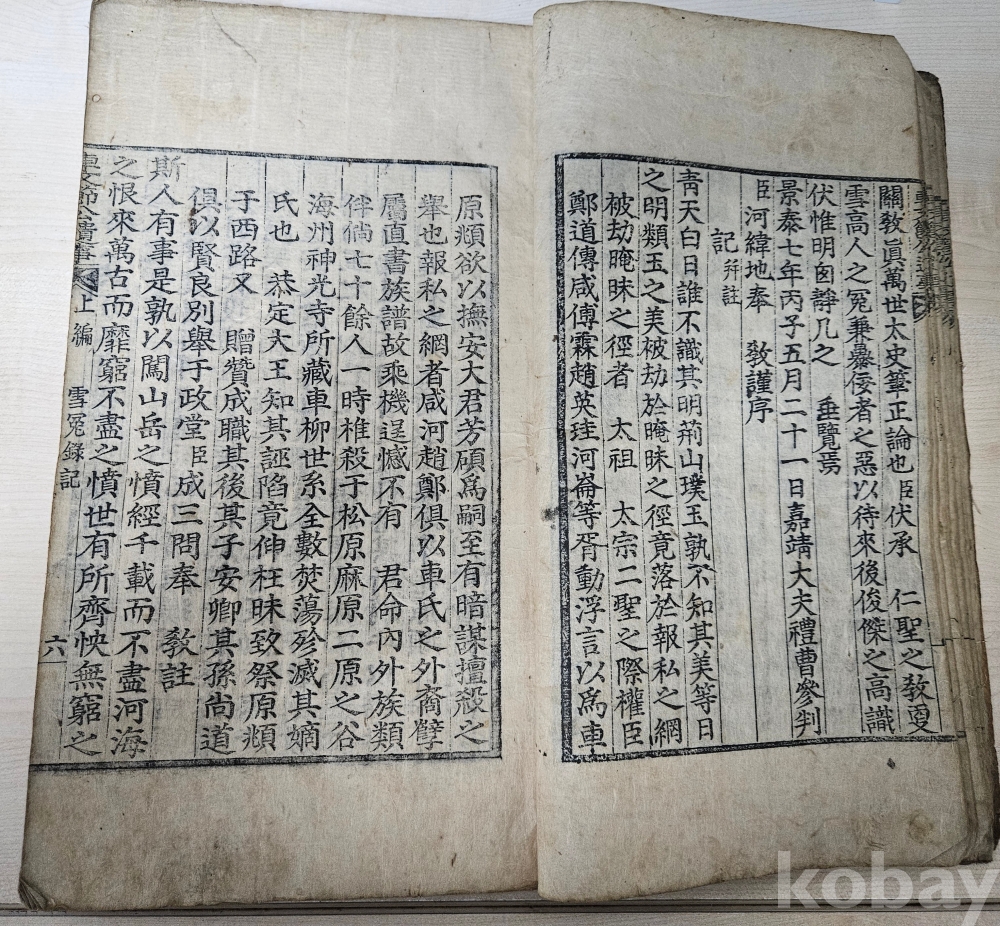 關敎眞萬世太史筆正論也臣伏承 仁聖之敎更
雪高人之冤兼暴佞者之惡以待來後俊傑之高識
伏惟明囪諍几之 垂覽焉
景泰七年丙子五月二十一日嘉靖大夫禮曹參判
臣河緯地奉 敎謹序
記幷註
靑天白日誰不識其明荊山璞玉孰不知其美等日
之明類玉之美被劫於晻昧之徑竟落於報私之網
被劫晻昧之徑者 太祖 太宗二聖之際權臣
鄭道傳咸傅霖趙英珪河崙等胥動浮言以爲車
原頫欲以撫安大君芳碩爲嗣至有暗謀擅殺之
舉也報私之網者咸河趙鄭俱以車氏之外裔孼
屬直書族譜故乘機逞憾不有 君命內外族類
伴倘七十餘人一時椎殺于松原麻原二原之谷
海州神光寺所藏車柳世系全數焚蕩殄滅其嫡
氏也 恭定大王知其誣陷竟伸枉昧致祭原頫
子西路又 贈贊成職其後其子安卿其孫尙道
俱以賢良別舉于政堂臣成三問奉 敎註
斯人有事是孰以闖山岳之憤經千載而不盡河海
之恨來萬古而靡窮不盡之憤世有所齊怏無窮之
車文節公遺事 上編 雪冤錄記 六
kobay